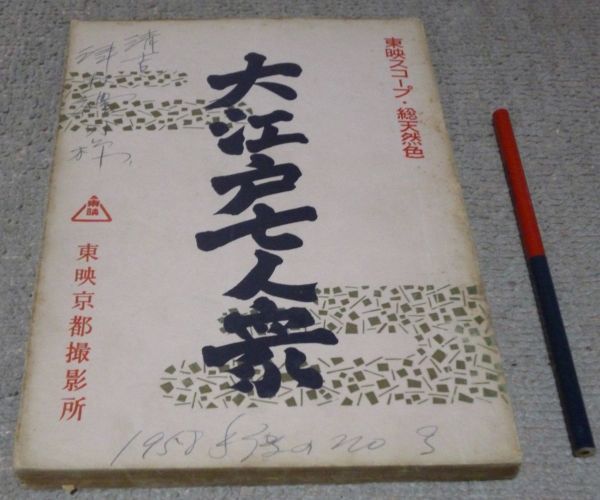 東映スコープ・総天然色
大江戸七人衆
東映
東映京都撮影所
1958 の NO 3